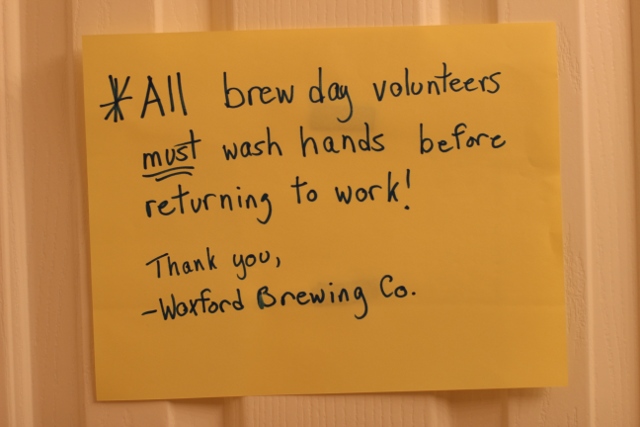 *All brew day volunteers
must wash hands before
returning to work!
Thank you,
-Woxford Brewing Co.